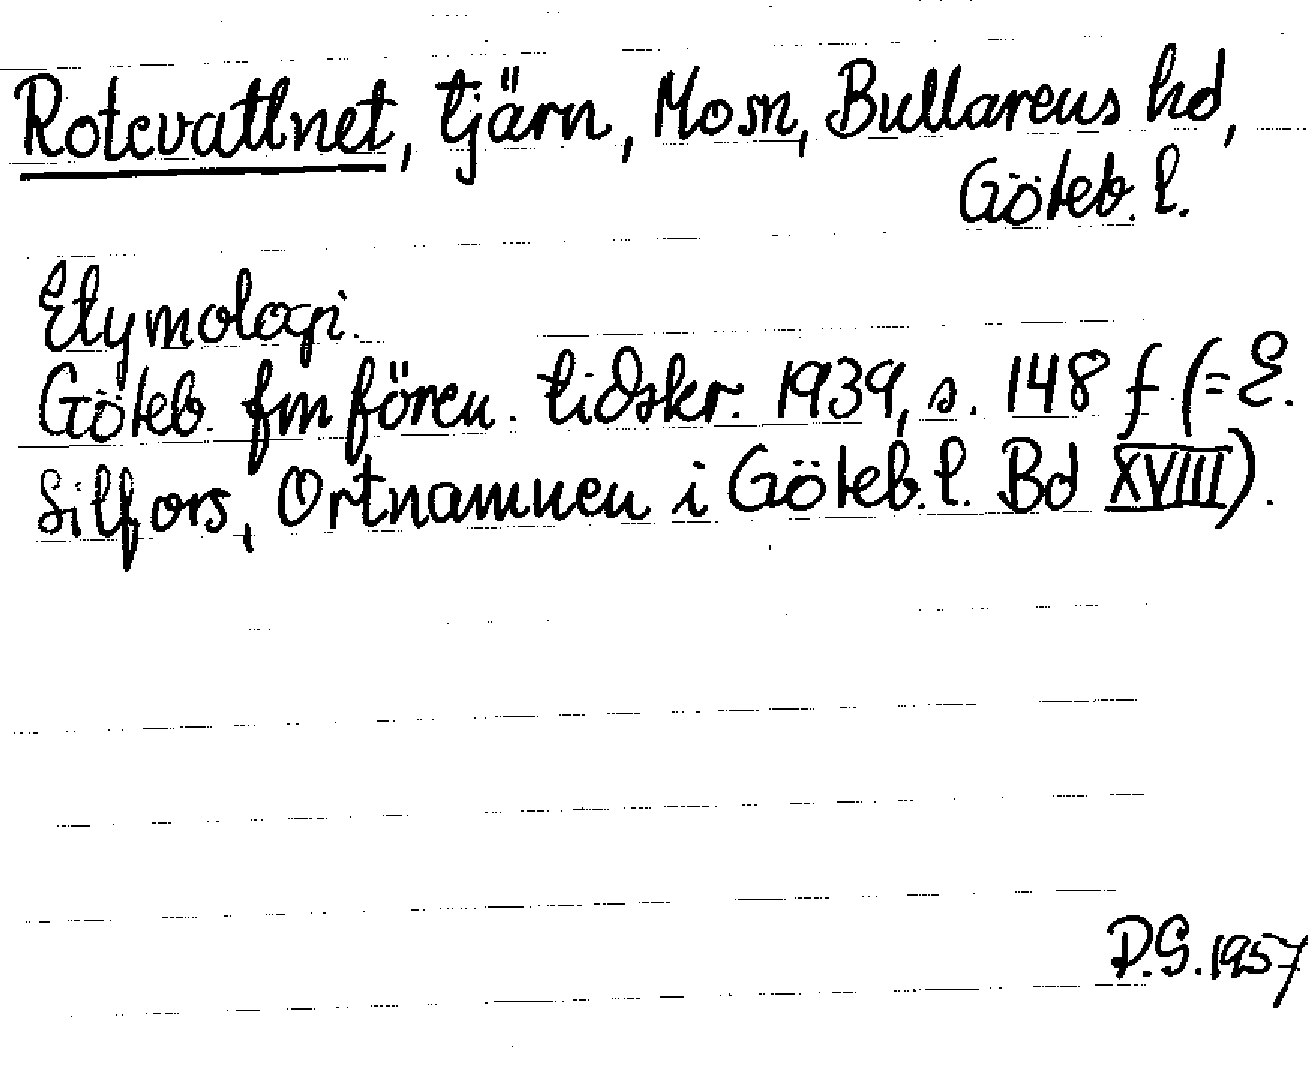 Rotevattnet, tjärn, Mo sn, Bullarens hd,
Göteb. l.
Etymologi.
Göteb. fm fören. tidskr. 1939, s. 148 f (= E.
Silfors, Ortnamnen i Göteb. l. Bd XVIII).
P.G. 1957